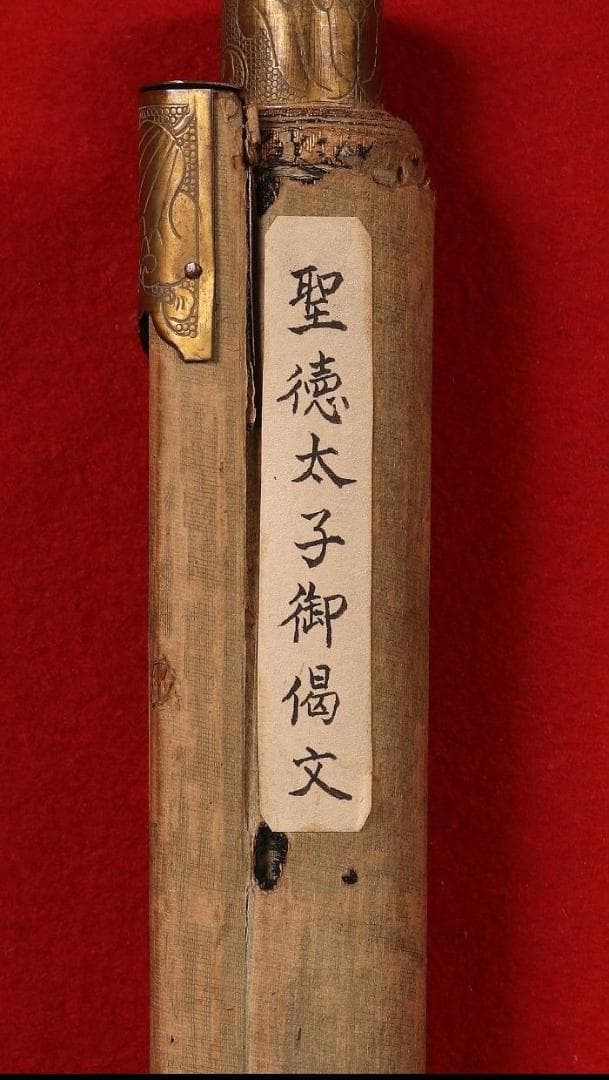 聖徳太子御偈文